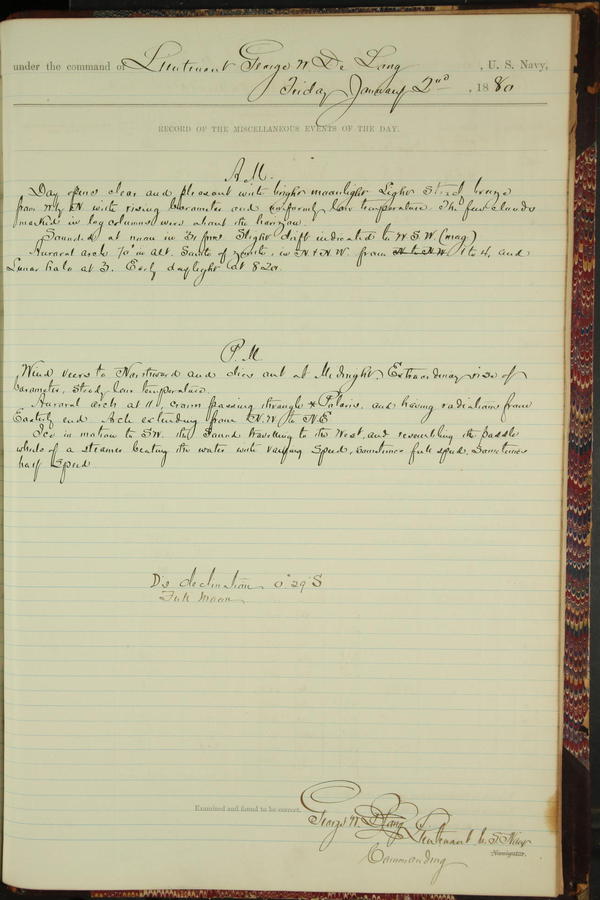 under the command of Lieutenant George W De Long , U. S. Navy,
Friday January 2nd , 1880
RECORD OF THE MISCELLANEOUS EVENTS OF THE DAY.
A.M.
Day opens clear and pleasant with bright moonlight. Light steady breeze
from N by W with rising barometer and uniformly low temperature. The few clouds
marked in log columns were about the horizon.
Sounded at noon in 31 fms. Slight drift indicated to WSW (mag)
Auroral arch 70° in alt. South of zenith, in N & NW from 1 to 4, and
Lunar halo at 3. Early daylight at 8.20.
P.M.
Wind veers to Northward and dies out at Midnight. Extraordinary rise of
barometer, steady low temperature.
Auroral arch at 11, crown passing through Polaris, and having radiations from
Easterly end. Arch extending from N.W. to N.E
Ice in motion to SW. the Sound travelling to the West, and resembling the paddle
wheels of a steamer beating the water with varying Speed, sometimes full speed, Sometimes
half Speed
D's declination 0° 29' S
Full Moon
Examined and found to be correct.
George W. De Long Lieutenant U.S. Navy
Navigator.
Commanding